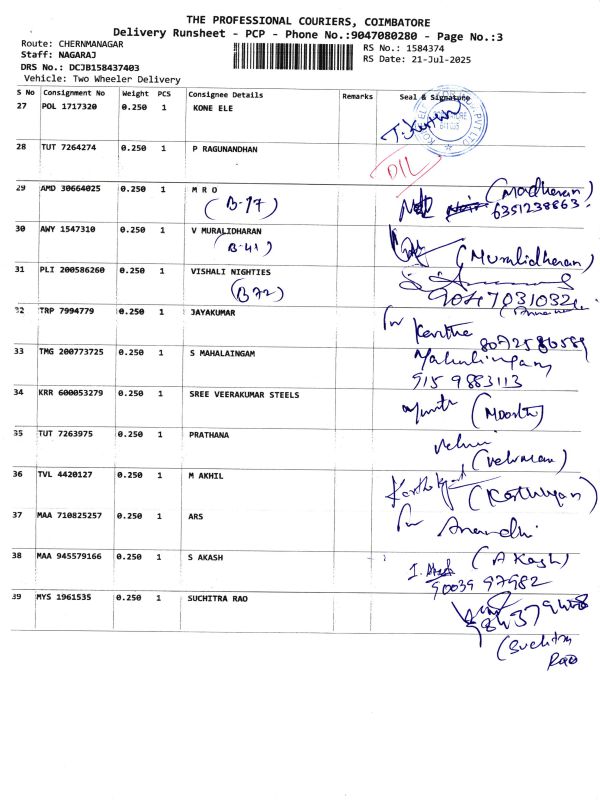 THE PROFESSIONAL COURIERS, COIMBATORE
Delivery Runsheet - PCP - Phone No.:9047080280 - Page No.:3
Route: CHERNMANAGAR
Staff: NAGARAJ
DRS No.: DCJB158437403
Vehicle: Two Wheeler Delivery
RS No.: 1584374
RS Date: 21-Jul-2025
S No Consignment No Weight PCS Consignee Details Remarks Seal & Signature
27 POL 1717320 0.250 1 KONE ELE
28 TUT 7264274 0.250 1 P RAGUNANDHAN
DIL
29 AMD 30664025 0.250 1 M R O (Madharan)
(B-17) 6351238863
30 AWY 1547310 0.250 1 V MURALIDHARAN
(B-41) (Muralidharan)
31 PLI 200586260 0.250 1 VISHALI NIGHTIES
(B72) 9047031032
32 TRP 7994779 0.250 1 JAYAKUMAR
for Kavitha 8072586589
33 TMG 200773725 0.250 1 S MAHALAINGAM Mahalingam
915 9883113
34 KRR 600053279 0.250 1 SREE VEERAKUMAR STEELS
(Moorthy)
35 TUT 7263975 0.250 1 PRATHANA
36 TVL 4420127 0.250 1 M AKHIL
(Karthikyan)
37 MAA 710825257 0.250 1 ARS for Anandhi
38 MAA 945579166 0.250 1 S AKASH (AKash)
90039 97982
39 MYS 1961535 0.250 1 SUCHITRA RAO
(Suchitra
Rao